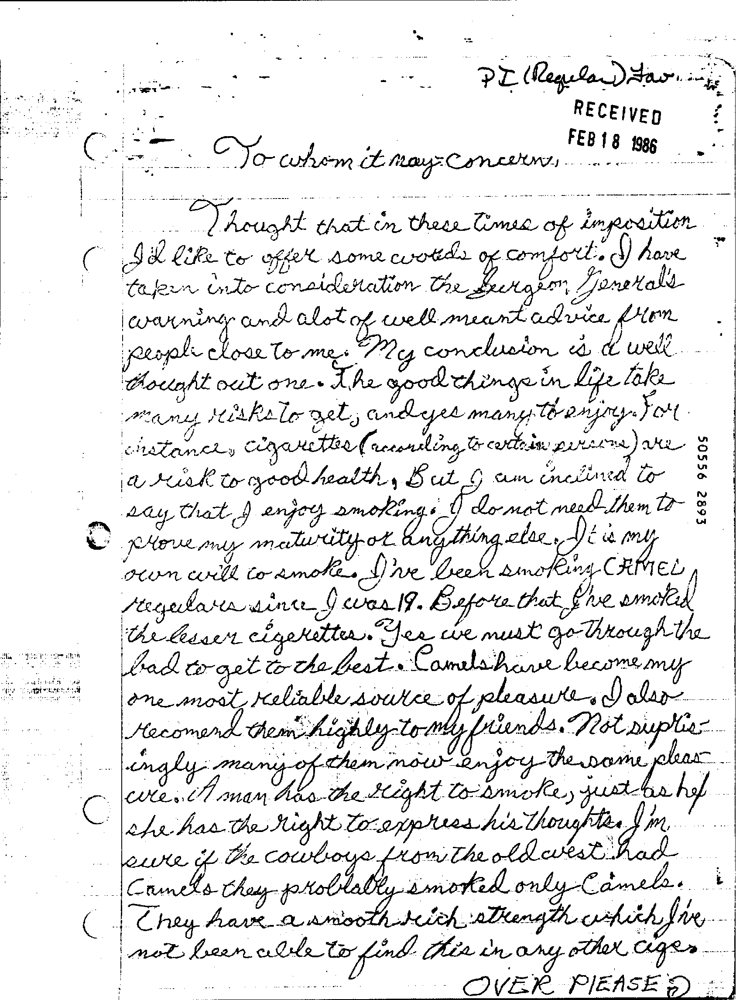 PI (Regular) Fav.
RECEIVED
FEB 18 1986
To whom it may concern,
Thought that in these times of imposition
I'd like to offer some words of comfort. I have
taken into consideration the Surgeon General's
warning and alot of well meant advice from
people close to me. My conclusion is a well
thought out one. The good things in life take
many risks to get, and yes many to enjoy. For
instance, cigarettes (according to certain persons) are
a risk to good health, But I am inclined to
say that I enjoy smoking. I do not need them to
prove my maturity or anything else. It is my
own will to smoke. I've been smoking CAMEL
regulars since I was 19. Before that I've smoked
the lesser cigerettes. Yes we must go through the
bad to get to the best. Camels have become my
one most reliable source of pleasure. I also
recomend them highly to my friends. Not supris-
ingly many of them now enjoy the same pleas
ure. A man has the right to smoke, just as he/
she has the right to express his thoughts. I'm
sure if the cowboys from the old west had
Camels they problably smoked only Camels.
They have a smooth rich strength which I've
not been able to find this in any other cige.
OVER PLEASE
50556 2893